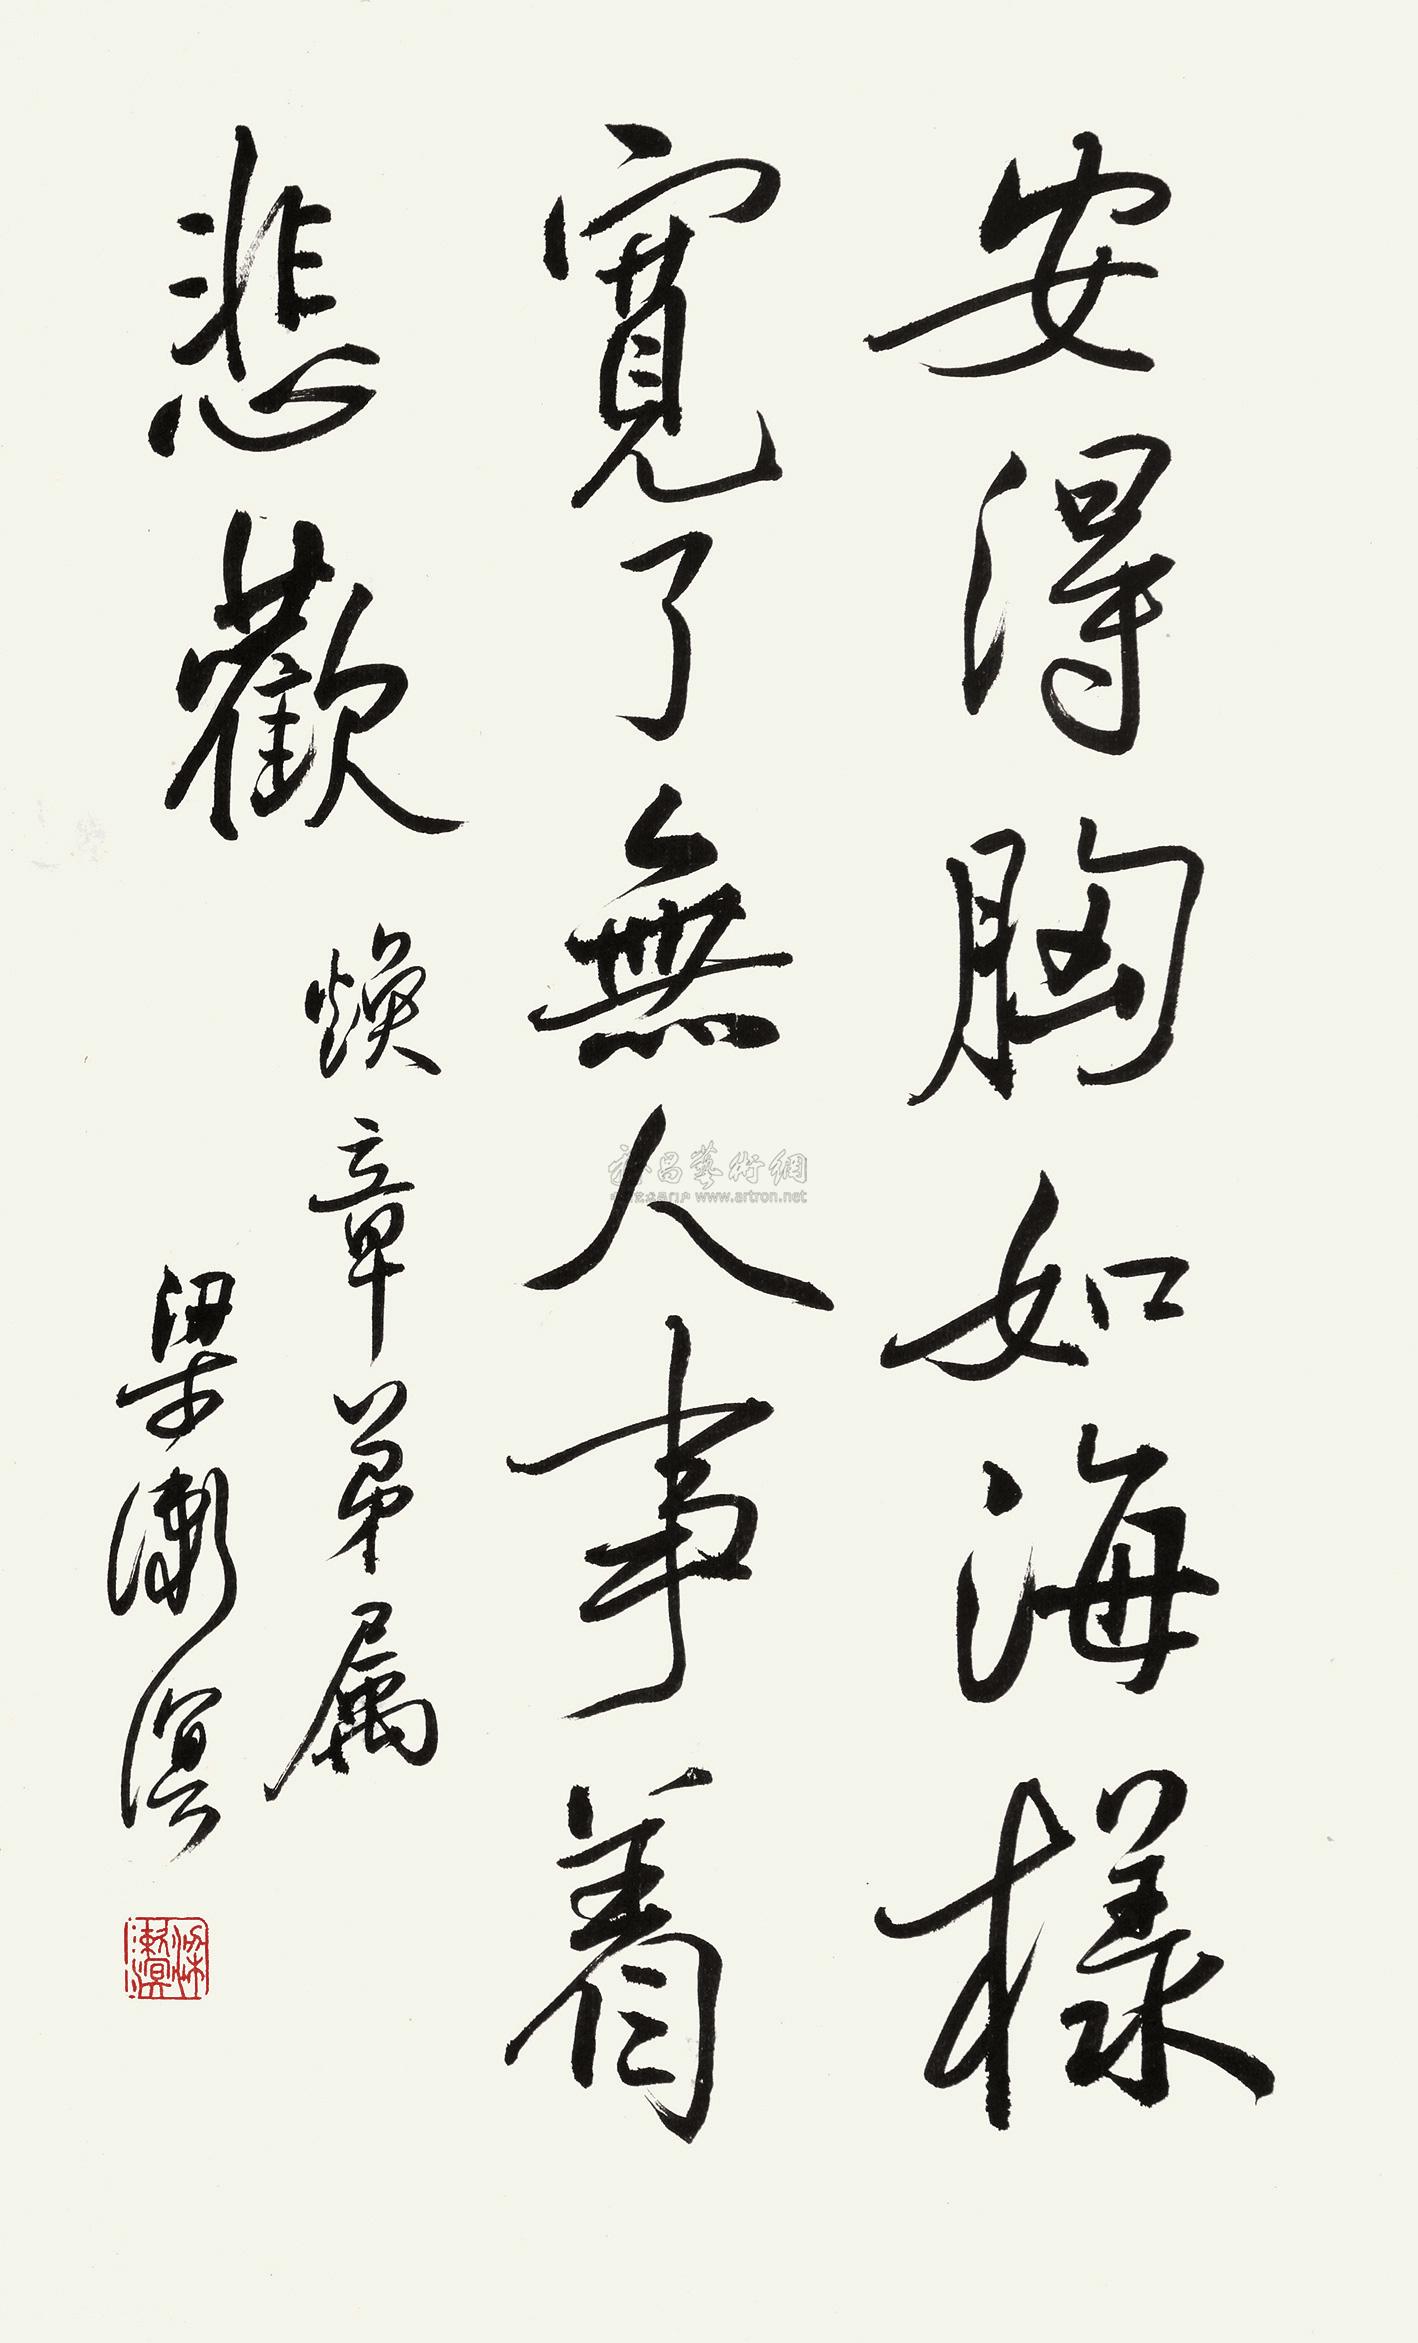 安得胸如海樣
寬了無人事着
悲歡
煥章弟属
梁漱溟
梁漱溟
雅昌藝術網
www.artron.net